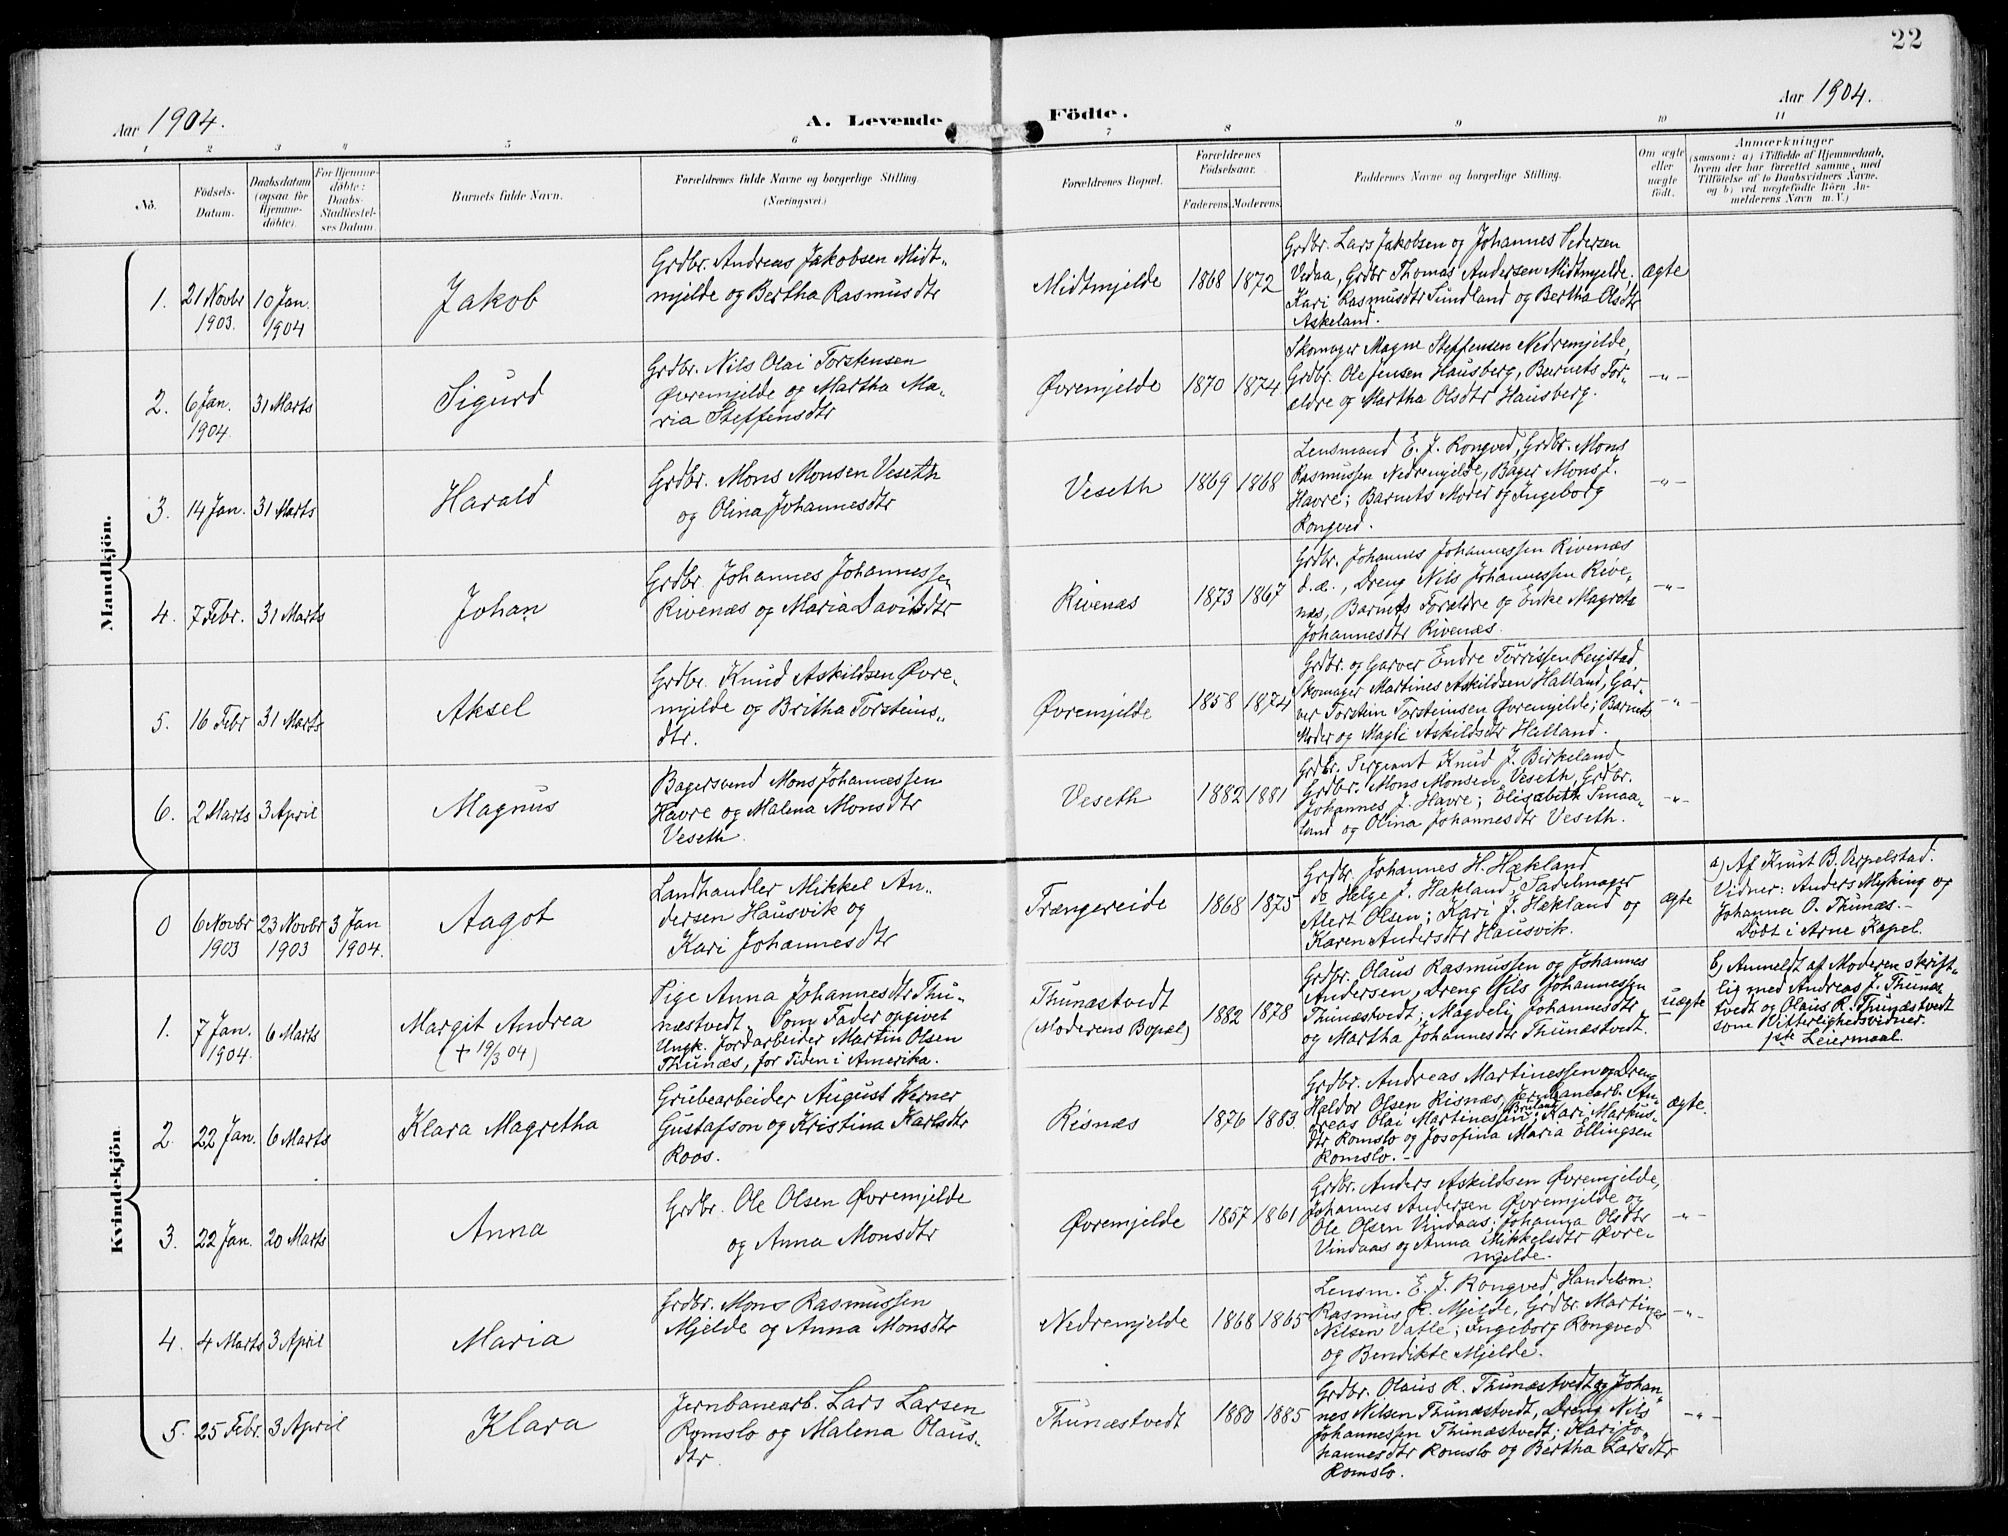 22
Aar 1904.
A. Levende
Födte.
Aar 1904.
1
2
3
4
5
6
7
8
9
10
11
No.
Födsels-
Datum.
Daabsdatum
(ogsaa for
Hjemme-
döbte).
For Hjemme-
döbte:
Daabs-
Stadfæstel-
ses Datum.
Barnets fulde Navn.
Forældrenes fulde Navne og borgerlige Stilling
(Næringsvei.)
Forældrenes Bopæl.
Forældrenes
Födselsaar.
Faderens.
Moderens.
Faddernes Navne og borgerlige Stilling.
Om ægte
eller
uægte
födt.
Anmærkninger
(saasom: a) i Tilfælde af Hjemmedaab,
hvem der har forrettet samme, med
Tilföielse af to Daabsvidners Navne,
og b) ved uægtefödte Börn An-
melderens Navn m. V.)
Mandkjön.
1.
21 Novbr
1903.
10 Jan.
1904
Jakob
Grdbr. Andreas Jakobsen Midt-
mjelde og Bertha Rasmusdtr
Midtmjelde
1868
1872
Grdbr. Lars Jakobsen og Johannes Pedersen
Vedaa, Grdbr Thomas Andersen Midtmjelde,
Kari Rasmusdtr Sundland og Bertha Olsdtr
Askeland.
ægte
2.
6 Jan.
1904.
31 Marts
Sigurd
Grdbr. Nils Olai Torstensen
Øvremjelde og Martha Ma-
ria Steffensdtr
Øvremjelde
1870
1874
Skomager Magne Steffensen Nedremjelde,
Grdbr. Ole Jensen Hausberg, Barnets For-
ældre og Martha Olsdtr Hausberg.
-"-
3.
14 Jan.
31 Marts
Harald
Grdbr. Mons Monsen Veseth
og Olina Johannesdtr
Veseth
1869
1868
Lensmand E. J. Rongved, Grdbr. Mons
Rasmussen Nedremjelde, Bager Mons J.
Havre; Barnets Moder og Ingeborg
Rongved.
-"-
4.
7 Febr.
31 Marts
Johan
Grdbr. Johannes Johannessen
Rivenæs og Maria Davidsdtr
Rivenæs
1873
1867
Grdbr. Johannes Johannessen Rivenæs
d.æ., Dreng Nils Johannessen Rive-
næs, Barnets Forældre og Enke Magreta
Johannesdtr Rivenæs.
-"-
5.
16 Febr
31 Marts
Aksel
Grdbr. Knud Askildsen Øvre-
mjelde og Britha Torsteins-
dtr.
Øvremjelde
1858
1874
Grdbr. og Garver Endre Tørrissen Reigstad,
Skomager Martines Askildsen Halland, Gar-
ver Torstein Torsteinsen Øvremjelde; Barnets
Moder og Magli Askildsdtr Halland.
-"-
6.
2 Marts
3 April
Magnus
Bagersvend Mons Johannessen
Havre og Malena Monsdtr
Veseth.
Veseth
1882
1881
Grdbr. Sergeant Knud J. Birkeland
Grdbr. Mons Monsen Veseth, Grdbr.
Johannes J. Havre; Elisabeth Smaa-
land og Olina Johannesdtr Veseth.
-"-
Kvindekjön.
0
6 Novbr
1903
23 Novbr
1903
3 Jan
1904.
Aagot
Landhandler Mikkel An-
dersen Hausvik og
Kari Johannesdtr
Trængereide
1868
1875
Grdbr. Johannes H. Hækland
do Helge J. Hækland, Sadelmager
Alert Olsen; Kari J. Hækland og
Karen Andersdtr Hausvik.
ægte
a) Af Knut B. Oppelstad.
Vidner: Anders Myking og
Johanna O. Thunæs.-
Døbt i Arne Kapel.
1.
7 Jan.
1904.
6 Marts
Margit Andrea
(+ 19/3 04)
Pige Anna Johannesdtr Thu-
næstvedt. Som Fader opgivet
Ungk. Jordarbeider Martin Olsen
Thunæs, for Tiden i Amerika.
Thunæstvedt
(Moderens Bopæl)
1882
1878
Grdbr. Olaus Rasmussen og Johannes
Andersen, Dreng Nils Johannessen
Thunæstvedt; Magdeli Johannesdtr
og Martha Johannesdtr Thunæstvedt.
uægte
b) Anmeldt af Moderen skrift-
lig med Andreas J. Thunæs-
tvedt og Olaus R. Thunæstvedt
som Vitterlighedsvidner.
1ste Leiermaal.
2.
22 Jan.
6 Marts
Klara Magretha
Grubearbeider August Werner
Gustafson og Kristina Karlsdtr
Roos.
Risnæs
1876
1883
Grdbr. Andreas Martinessen og Dreng
Haldor Olsen Risnæs, Jernbanearb. An-
dreas Olai Martinessen Bruland; Kari Markus-
dtr Romslo og Josofina Maria Ellingsen
Romslo.-
ægte.
3.
22 Jan.
20 Marts
Anna
Grdbr. Ole Olsen Øvremjelde
og Anna Monsdtr
Øvremjelde
1857
1861
Grdbr. Anders Askildsen Øvremjelde,
Johannes Andersen Øvremjelde og
Ole Olsen Vindaas; Johanna Olsdtr
Vindaas og Anna Mikkelsdtr Øvre-
mjelde.
-"-
4.
4 Marts
3 April
Maria
Grdbr. Mons Rasmussen
Mjelde og Anna Monsdtr
Nedremjelde
1868
1865
Lensm. E. J. Rongved, Handelsm.
Rasmus R. Mjelde, Grdbr. Martines
Nilsen Vatle; Ingeborg Rongved
og Bendikte Mjelde.
-"-
5.
25 Febr.
3 April
Klara
Jernbanearb. Lars Larsen
Romslo og Malena Olaus-
dtr.
Thunæstvedt
1880
1885
Grdbr. Olaus R. Thunæstvedt og Johan-
nes Nilsen Thunæstvedt, Dreng Nils
Johannessen Thunæstvedt; Kari Jo-
hannesdtr Romslo og Bertha Larsdtr
Romslo.
-"-